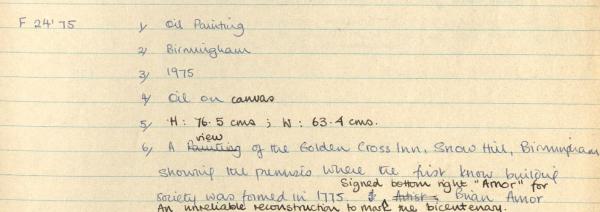 F 24'75 1) Oil Painting
2) Birmingham
3) 1975
4) Oil on canvas
5) H: 76.5 cms ; W: 63.4 cms.
view
6) A Painting of the Golden Cross Inn, Snow Hill, Birmingham
showing the premises where the first know building
Signed bottom right "Amor" for
society was formed in 1775. Artist: Brian Amor
An unreliable reconstruction to mark the bicentenary.